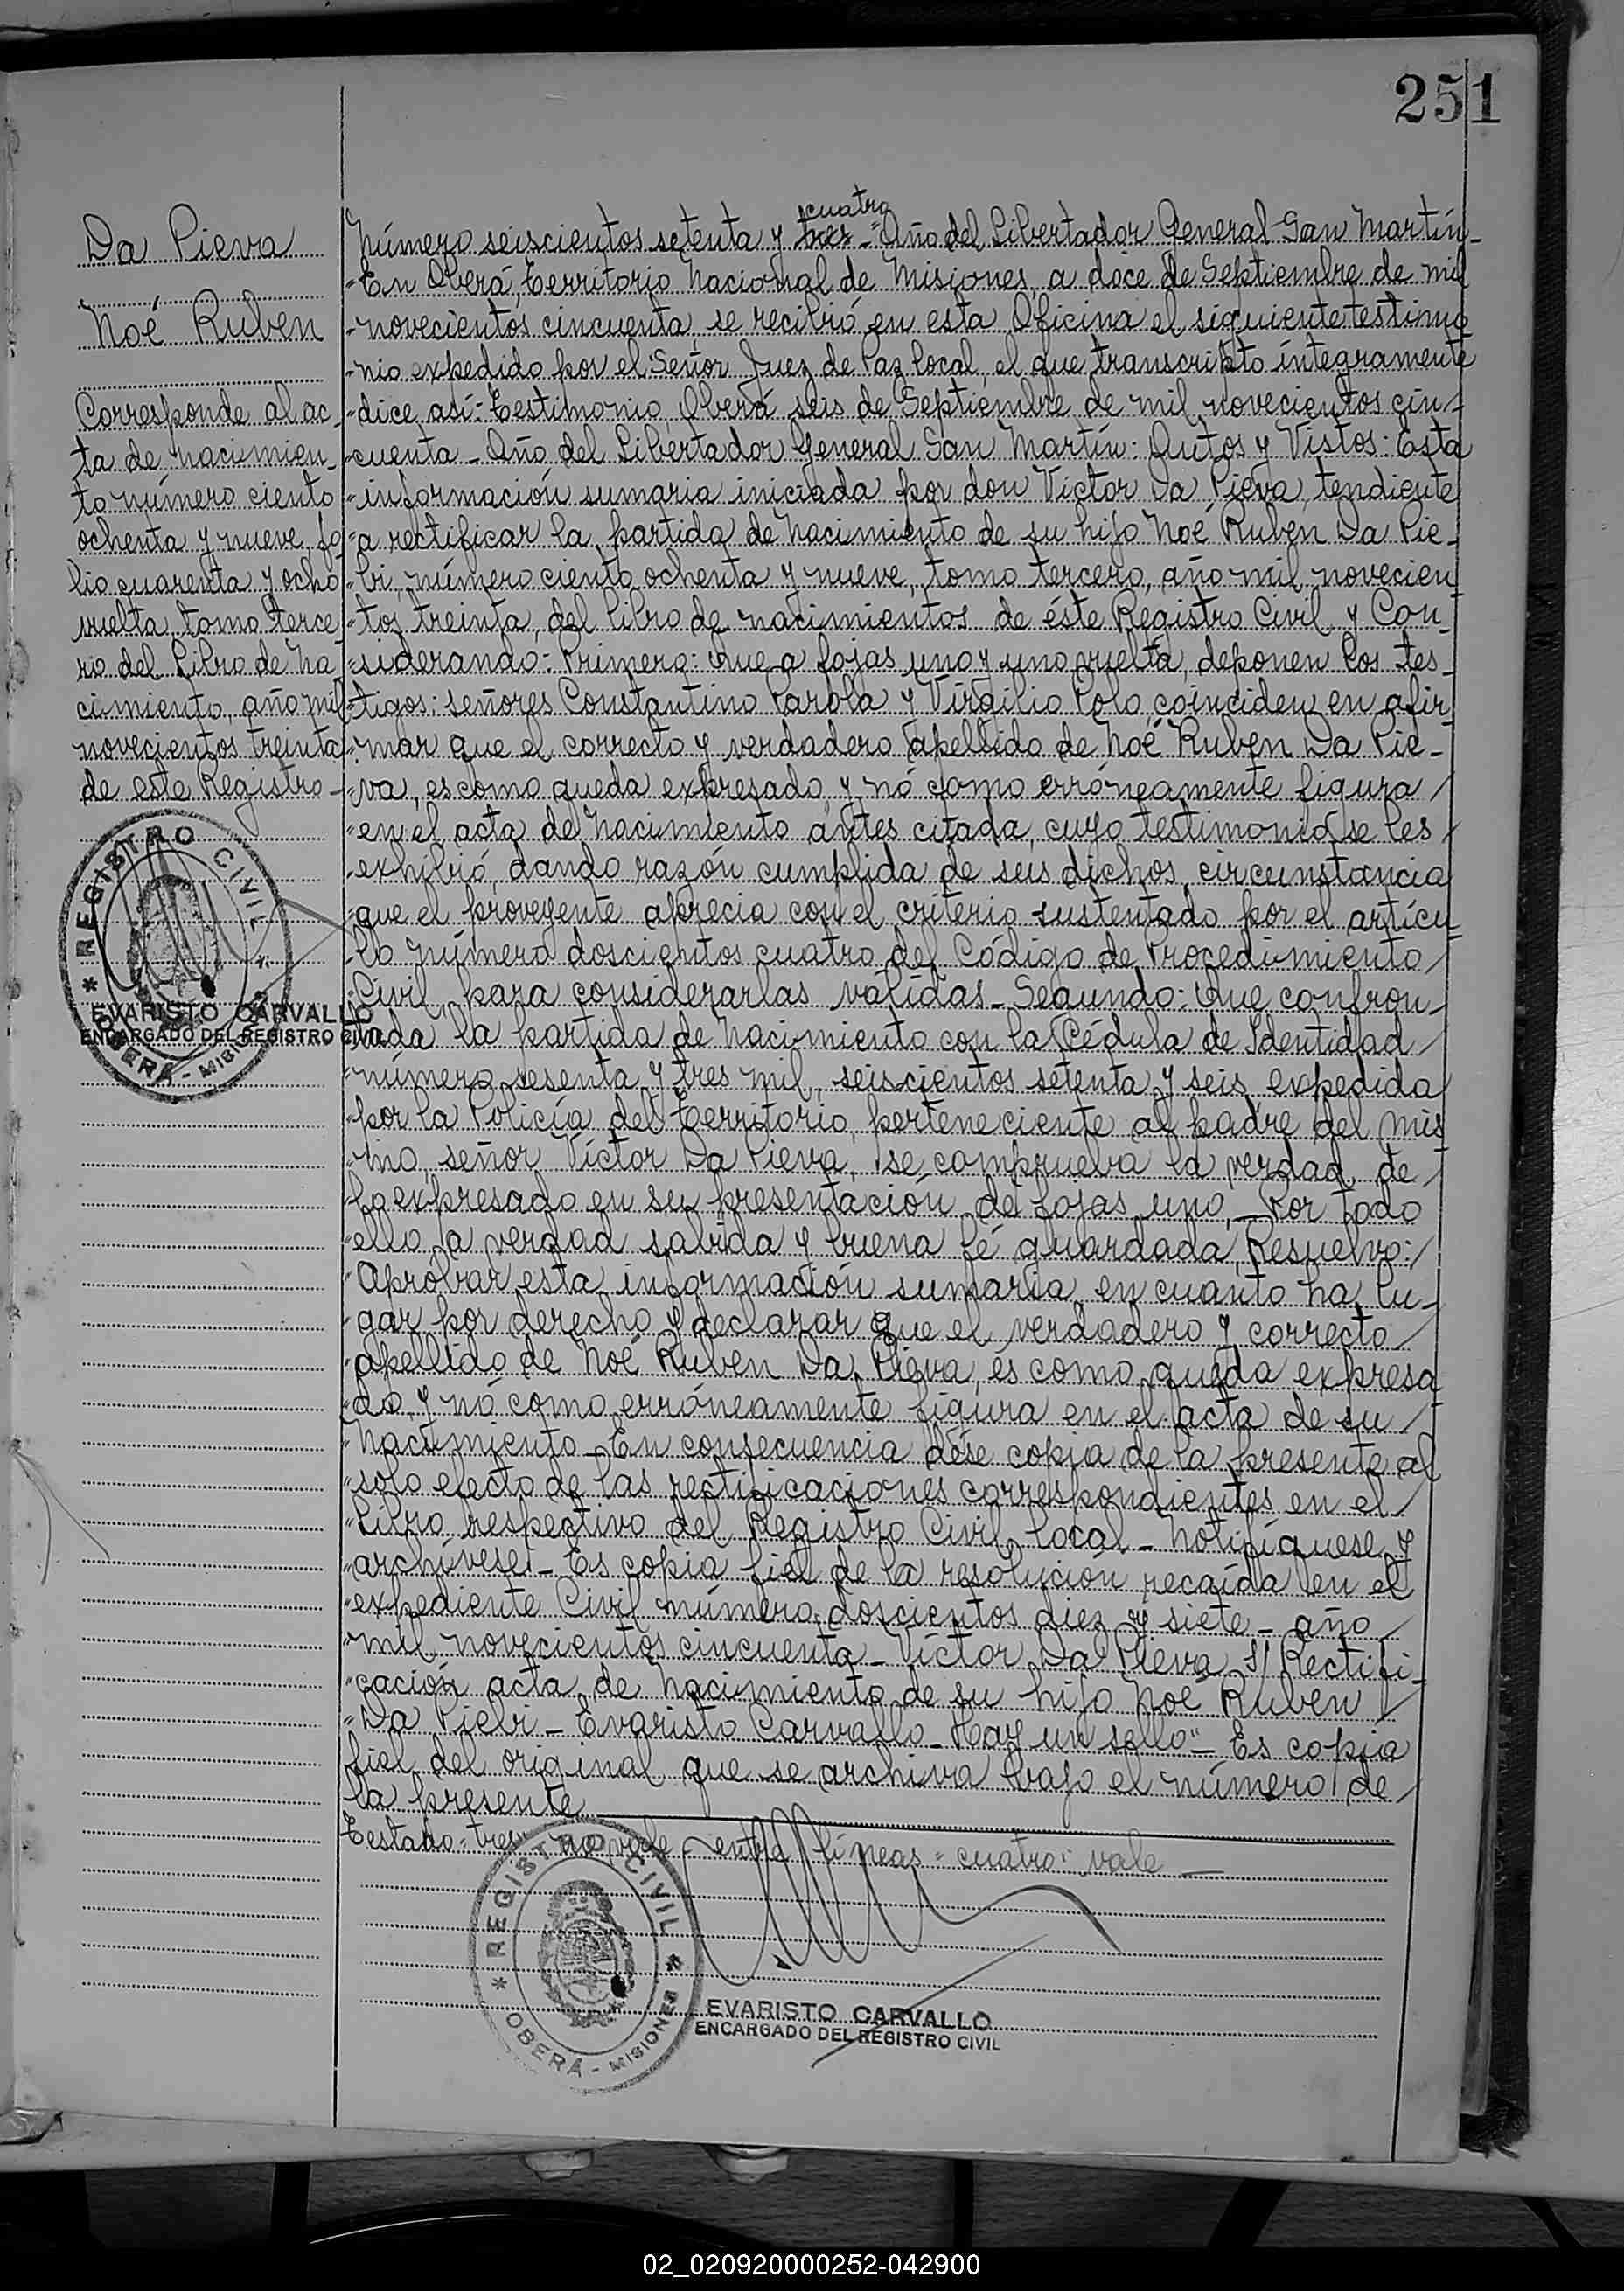 251
Da Pieva
Noé Ruben
Corresponde al ac-
ta de nacimien-
to número ciento
ochenta y nueve, fo-
lio cuarenta y ocho
vuelta, tomo terce-
ro del Libro de Na-
cimiento, año mil
novecientos treinta
de este Registro-
REGISTRO CIVIL
OBERÁ - MISIONES
EVARISTO CARVALLO
ENCARGADO DEL REGISTRO CIVIL
Número seiscientos setenta y tres - cuatro "Año del Libertador General San Martín-
"En Oberá, Territorio Nacional de Misiones, a doce de Septiembre de mil
"novecientos cincuenta, se recibió en esta Oficina el siguiente testimo
"nio expedido por el Señor Juez de Paz local, el que transcripto íntegramente
"dice así: Testimonio, Oberá seis de Septiembre de mil novecientos cin-
"cuenta - Año del Libertador General San Martín: Autos y Vistos: Esta
"información sumaria iniciada por don Víctor Da Pieva, tendiente
"a rectificar la partida de Nacimiento de su hijo Noé Rubén Da Pie-
"bi, número ciento ochenta y nueve, tomo tercero, año mil novecien
"tos treinta, del libro de nacimientos de éste Registro Civil y Con-
"siderando: Primero: Que a fojas uno y uno vuelta, deponen los tes-
"tigos: señores Constantino Parola y Virgilio Polo, coinciden en afir-
"mar que el correcto y verdadero apellido de Noé Ruben Da Pie-
"va, es como queda expresado, y nó como erróneamente figura /
"en el acta de Nacimiento antes citada, cuyo testimonio se les /
"exhibió, dando razón cumplida de sus dichos, circunstancia
"que el proveyente aprecia con el criterio sustentado por el artícu-
"lo número doscientos cuatro del Código de Procedimiento /
"Civil, para considerarlas válidas - Segundo: Que confron-
"tada la partida de Nacimiento con la Cédula de Identidad /
"número sesenta y tres mil, seiscientos setenta y seis, expedida
"por la Policía del Territorio, perteneciente al padre del mis
"mo, señor Víctor Da Pieva, se comprueba la verdad de /
"lo expresado en su presentación de fojas uno, - Por todo
"ello, a verdad sabida y buena fé guardada, Resuelvo: /
"Aprobar esta información sumaria, en cuanto ha lu-
"gar por derecho y declarar que el verdadero y correcto /
"apellido de Noé Ruben Da Pieva, es como queda expresa
"do, y nó como erróneamente figura en el acta de su /
"Nacimiento - En consecuencia dése copia de la presente al
"solo efecto de las rectificaciones correspondientes en el /
"Libro respectivo del Registro Civil local - Notifíquese y
"archívese - Es copia fiel de la resolución recaída en el
"expediente Civil número doscientos diez y siete - año /
"mil novecientos cincuenta - Víctor Da Pieva s/ Rectifi-
"cación acta de Nacimiento de su hijo Noé Ruben /
"Da Piebi - Evaristo Carvallo - Hay un sello" - Es copia
fiel del original que se archiva bajo el número de /
la presente
Testado: tres: no vale - entre líneas "cuatro" vale -
REGISTRO CIVIL
OBERÁ - MISIONES
EVARISTO CARVALLO
ENCARGADO DEL REGISTRO CIVIL
02_020920000252-042900